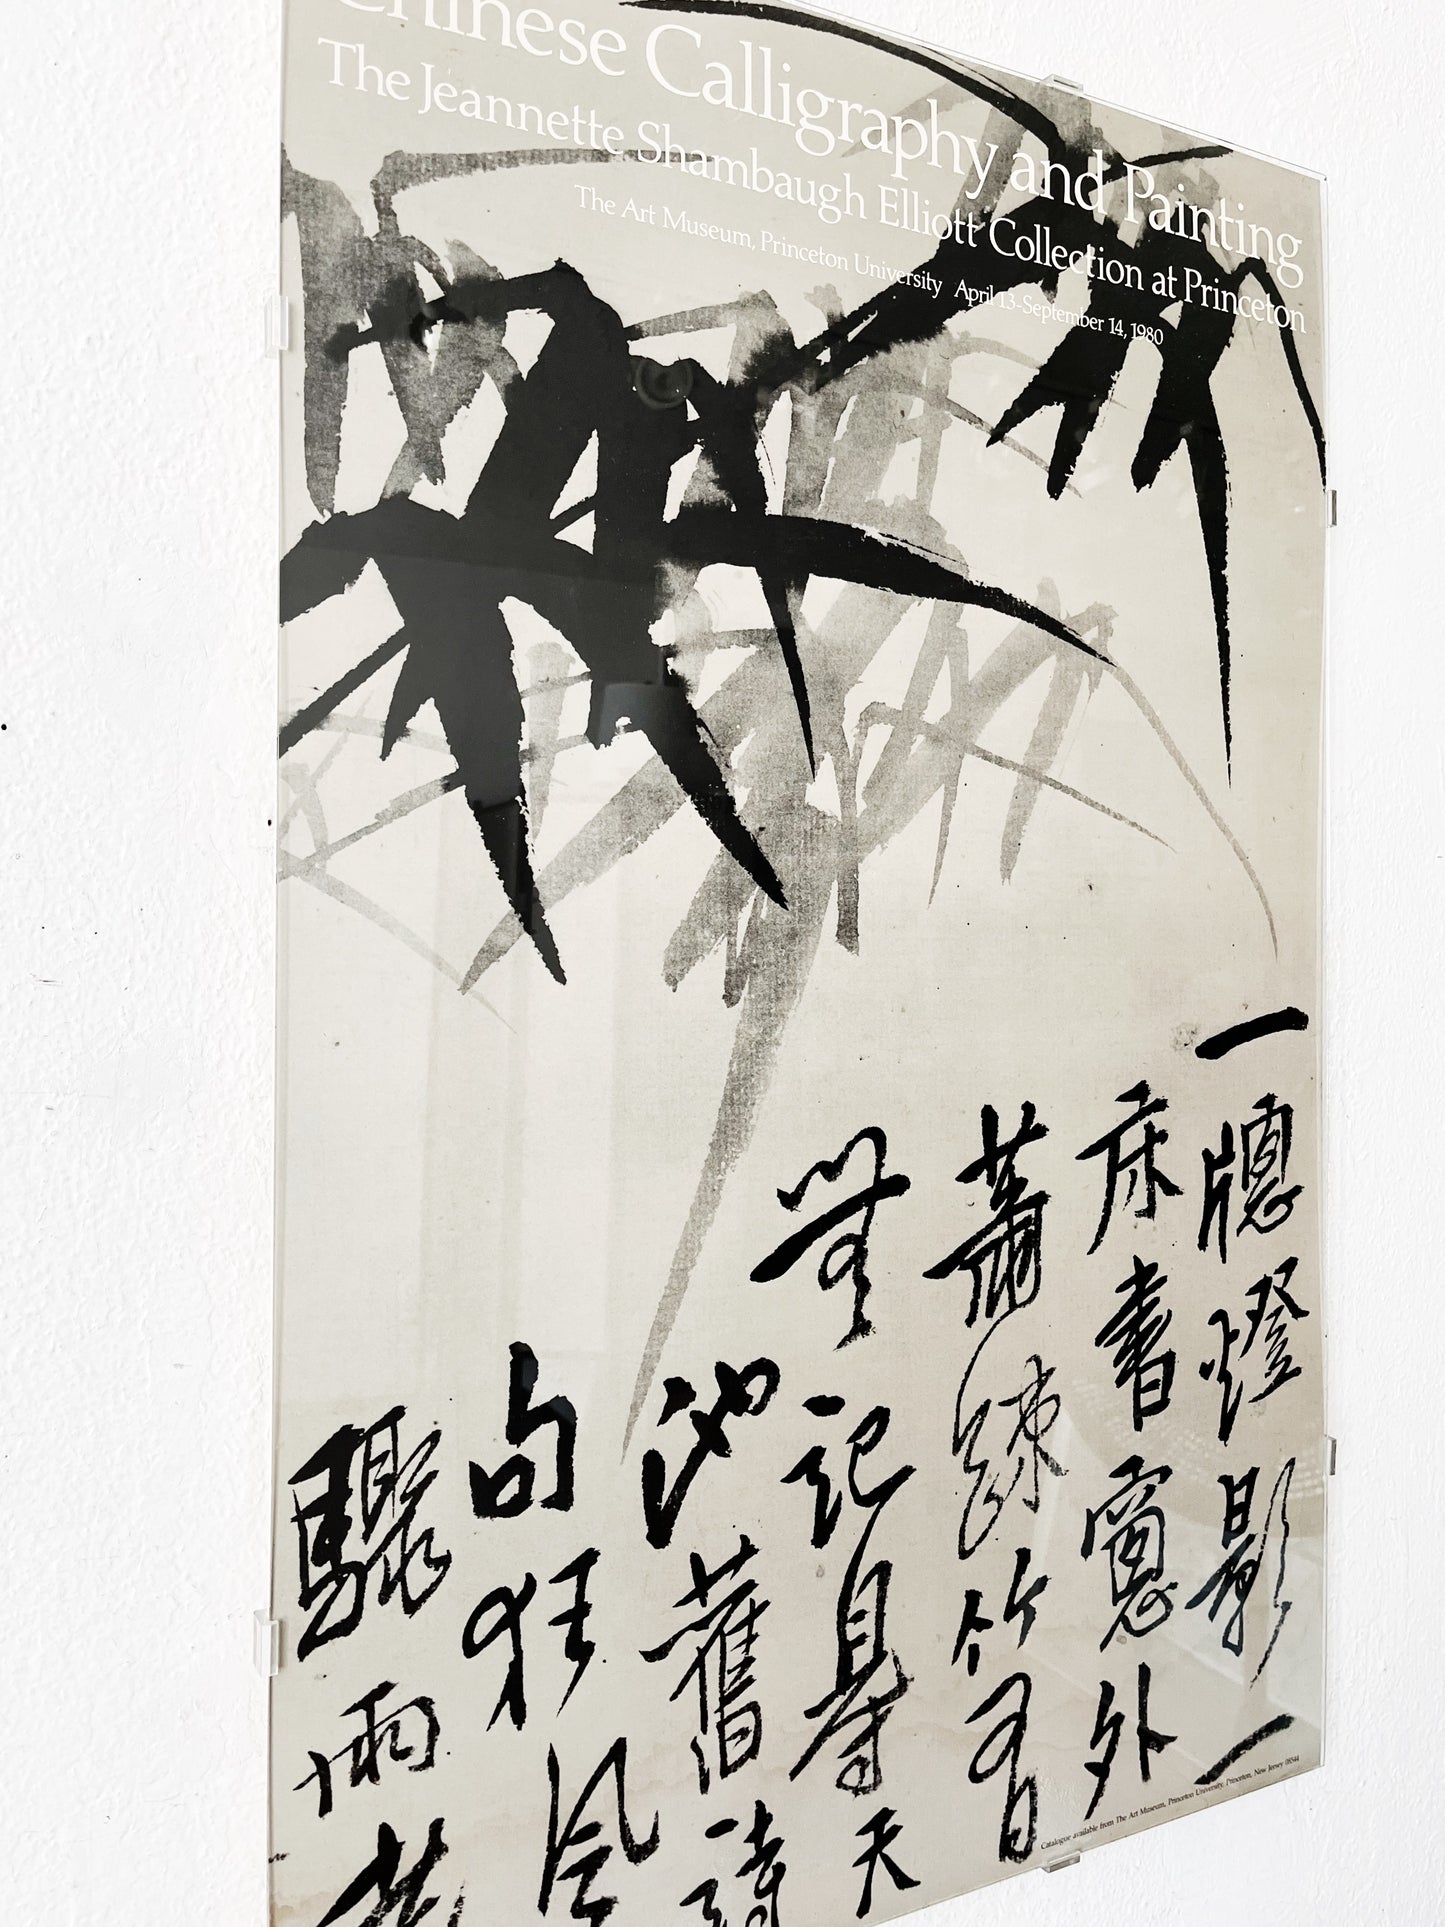 Chinese Calligraphy and Painting
The Jeannette Shambaugh Elliott Collection at Princeton
The Art Museum, Princeton University April 13-September 14, 1980
一牕燈影一
床書窻外
蕭疎竹有
無記得天
池舊詩
句狂風
驟雨
Catalogue available from The Art Museum, Princeton University, Princeton, New Jersey 08544